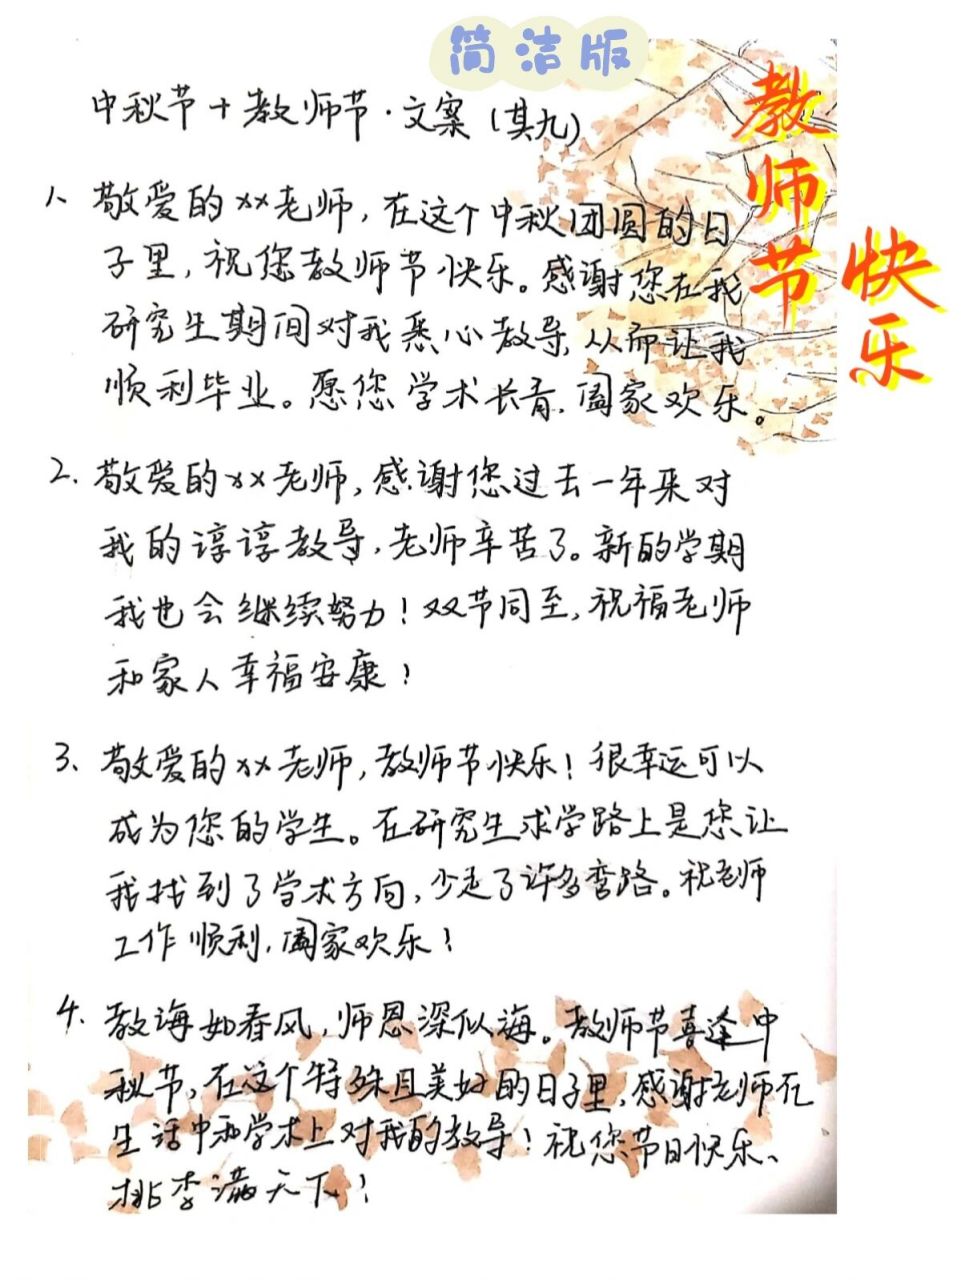 简洁版
教师节
快乐
中秋节+教师节·文案(其九)
1、敬爱的××老师,在这个中秋团圆的日
子里,祝您教师节快乐。感谢您在我
研究生期间对我悉心教导,从而让我
顺利毕业。愿您学术长青,阖家欢乐。
2、敬爱的××老师,感谢您过去一年来对
我的谆谆教导,老师辛苦了。新的学期
我也会继续努力!双节同至,祝福老师
和家人幸福安康!
3、敬爱的××老师,教师节快乐!很幸运可以
成为您的学生。在研究生求学路上是您让
我找到了学术方向,少走了许多弯路。祝老师
工作顺利,阖家欢乐!
4、教诲如春风,师恩深似海。教师节喜逢中
秋节,在这个特殊且美好的日子里,感谢老师在
生活中和学术上对我的教导!祝您节日快乐、
桃李满天下!